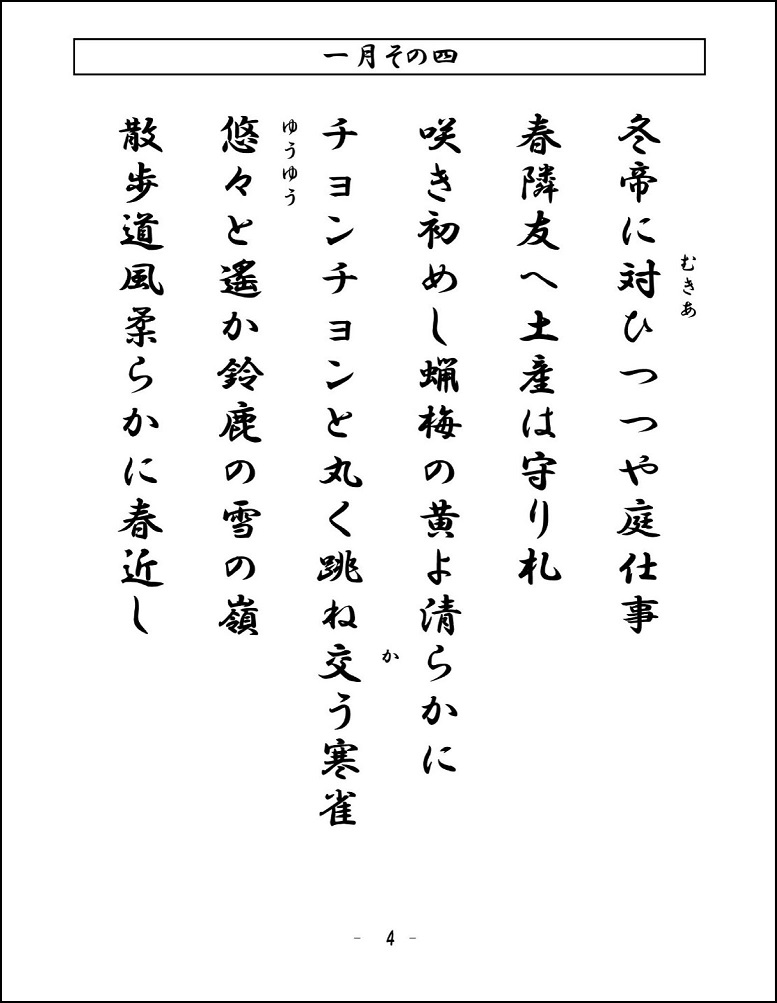 一月その四
冬帝に対ひつつや庭仕事
むきあ
春隣友へ土産は守り札
咲き初めし蝋梅の黄よ清らかに
チョンチョンと丸く跳ね交う寒雀
か
悠々と遙か鈴鹿の雪の嶺
ゆうゆう
散歩道風柔らかに春近し
- 4 -